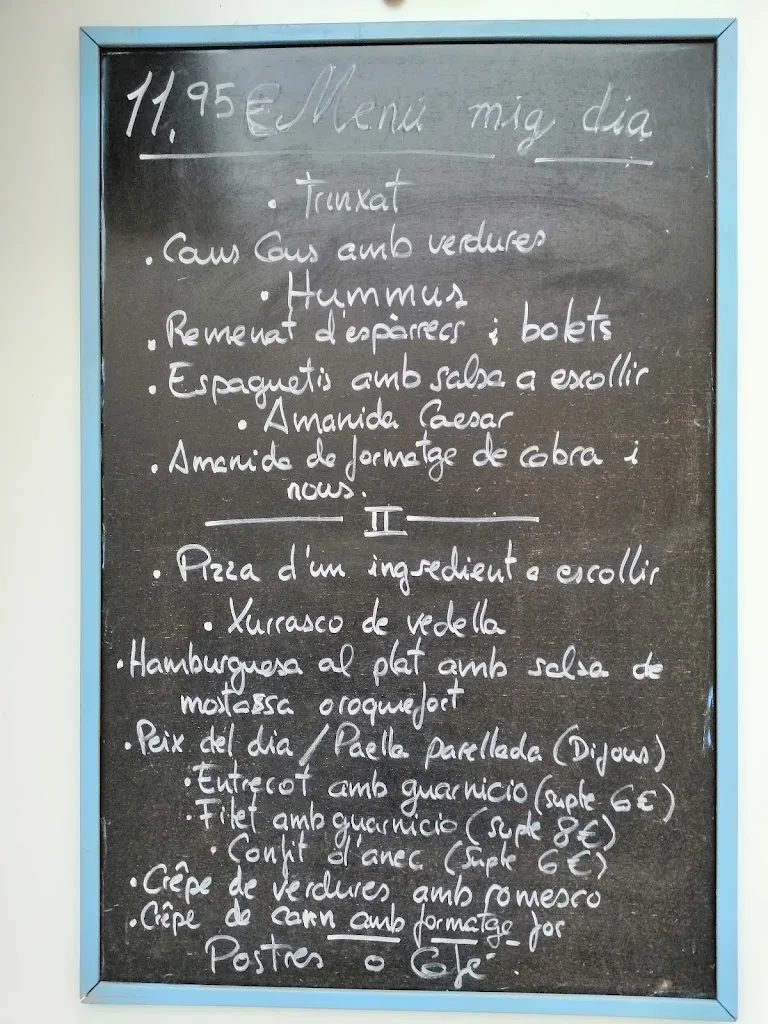 11,95€ Menú mig dia
• Trinxat
• Cous Cous amb verdures
• Hummus
• Remenat d'espàrrecs i bolets
• Espaguetis amb salsa a escollir
• Amanida Caesar
• Amanida de formatge de cabra i
nous.
II
• Pizza d'un ingredient a escollir
• Xurrasco de vedella
• Hamburguesa al plat amb salsa de
mostassa o roquefort
• Peix del dia / Paella parellada (Dijous)
• Entrecot amb guarnicio (suple 6€)
• Filet amb guarnicio (suple 8€)
• Confit d'anec (suple 6€)
• Crêpe de verdures amb romesco
• Crêpe de carn amb formatge for
Postres o Cafè